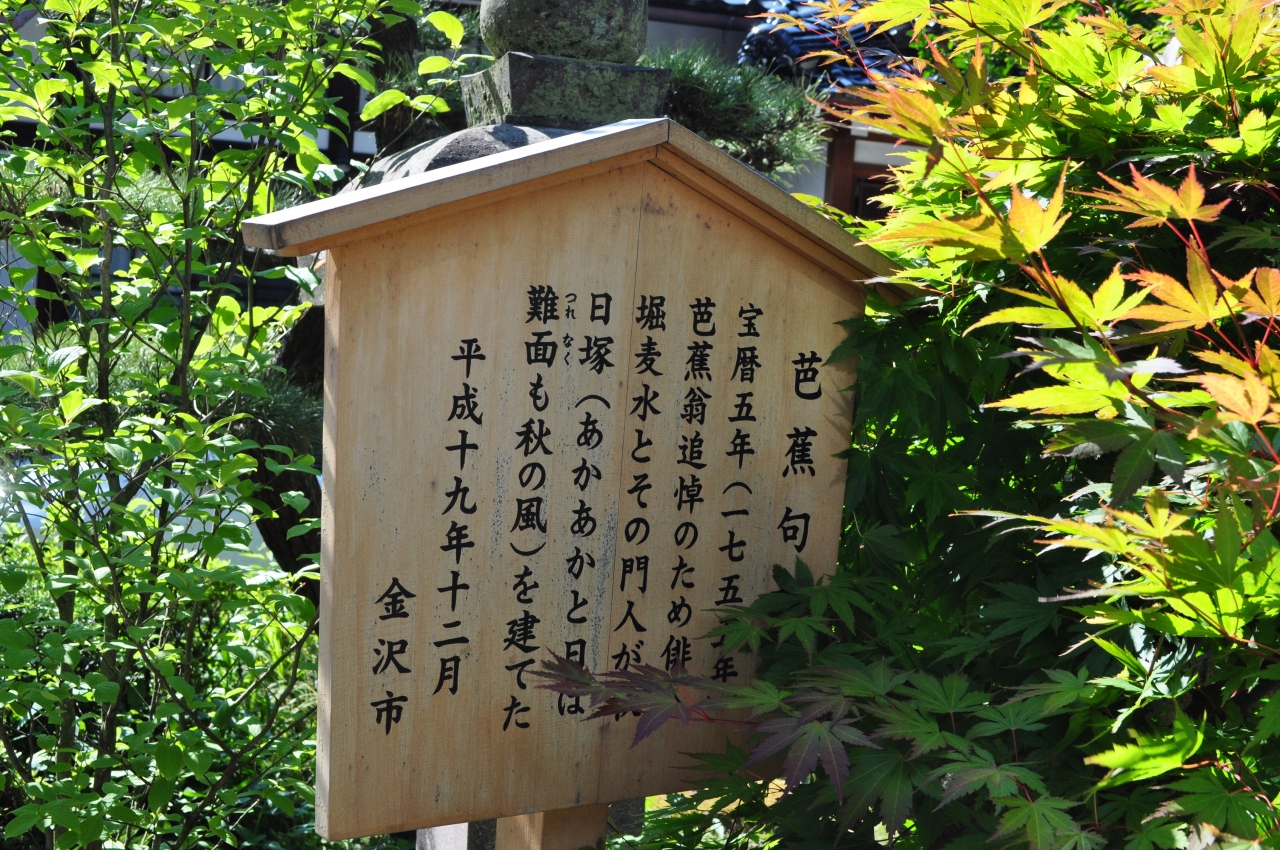 芭蕉句
宝暦五年（一七五
年
芭蕉翁追悼のため俳
堀麦水とその門人が
日塚（あかあかと日は
つれなく
難面も秋の風）を建てた
平成十九年十二月
金沢市